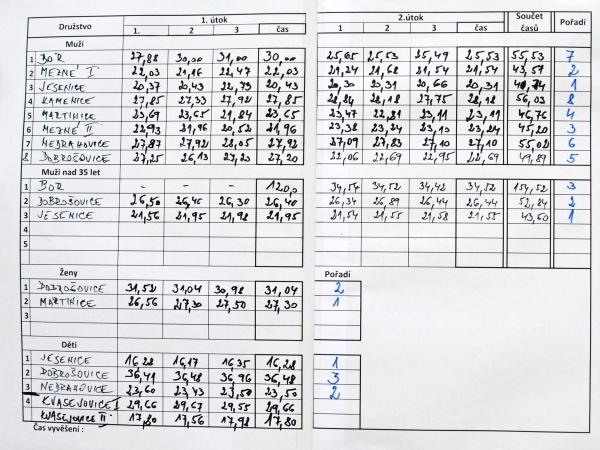 Družstvo 1. útok 2.útok Součet časů Pořadí
1. 2 3 čas 1 2 3 čas
Muži
1 BOR 27,88 30,00 31,00 30,00 25,65 25,53 25,49 25,53 55,53 7
2 MEZNÉ I 22,03 21,16 22,47 22,03 21,24 21,68 21,54 21,54 43,57 2
3 JESENICE 20,37 20,43 22,73 20,43 20,30 20,31 20,66 20,31 40,74 1
4 KAMENICE 27,85 27,33 27,92 27,85 28,84 28,18 27,75 28,18 56,03 8
5 MARTINICE 23,69 23,65 21,84 23,65 23,47 22,81 23,11 23,11 46,76 4
6 MEZNÉ II 22,93 21,96 20,52 21,96 23,38 23,24 23,13 23,24 45,20 3
7 NEDRAHOVICE 27,87 27,92 28,05 27,92 27,09 27,83 27,10 27,10 55,02 6
8 DOBROŠOVICE 27,25 26,13 27,20 27,20 22,06 22,69 22,95 22,69 49,89 5
Muži nad 35 let
1 BOR - - 120,0 34,54 34,52 34,42 34,52 154,52 3
2 DOBROŠOVICE 26,50 26,40 26,30 26,40 26,34 26,89 26,44 26,44 52,84 2
3 JESENICE 21,56 21,95 21,98 21,95 21,54 21,55 21,58 21,55 43,60 1
4
5
5
Ženy Pořadí
1 DOBROŠOVICE 31,52 31,04 30,98 31,04 2
2 MARTINICE 26,56 27,30 27,50 27,30 1
3
Děti
1 JESENICE 16,28 16,17 16,35 16,28 1
2 DOBROŠOVICE 36,41 36,48 36,96 36,48 3
3 NEDRAHOVICE 23,60 23,43 23,50 23,50 2
4 KVASEJOVICE I 29,66 29,67 29,55 29,66
KVASEJOVICE II 17,80 17,56 17,98 17,80
Čas vyvěšení :